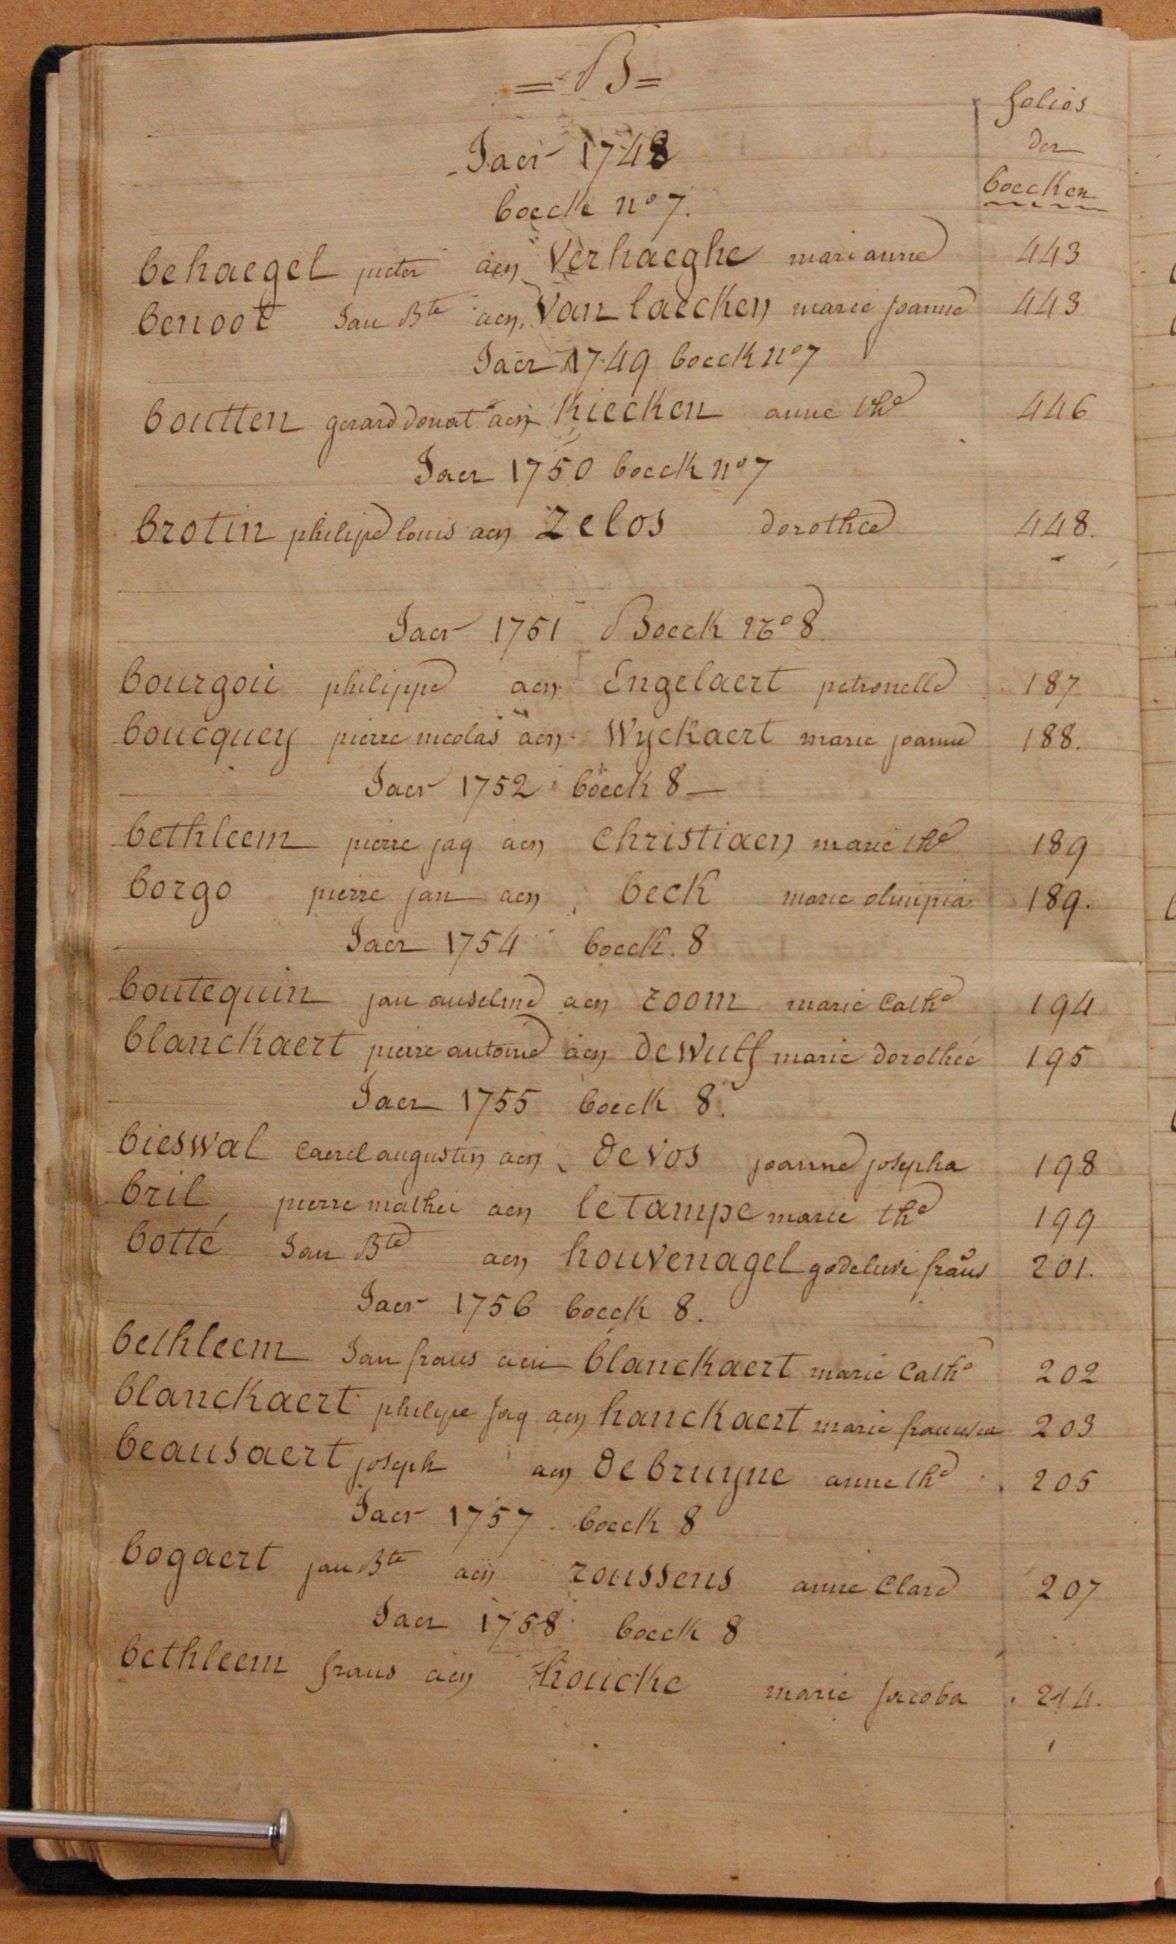 = B =
folios
der
boecken
Jaer 1748
boeck no 7.
behaegel pieter aen verhaeghe marianne 443
benoot Jan Bte aen van laecken marie joanne 443
Jaer 1749 boeck no 7
boutten gerard donat aen kiecken anne the 446
Jaer 1750 boeck no 7
brotin philipe louis aen zelos dorothee 448.
Jaer 1751 Boeck no 8
bourgois philippe aen Engelaert petronelle 187
boucquey pierre nicolas aen wyckaert marie joanne 188.
Jaer 1752 boeck 8 —
bethleem pierre jaq aen christiaen marie the 189
borgo pierre jan aen beck marie olimpia 189.
Jaer 1754 boeck. 8
boutequin jan anselme aen room marie Cathe 194
blanckaert pierre antoine aen de wulf marie dorothée 195
Jaer 1755 boeck 8.
bieswal Caerel augustin aen de vos joanne josepha 198
bril pierre mathei aen letampe marie the 199
botté Jan Bte aen houvenagel godelieve frans 201.
Jaer 1756 boeck 8.
bethleem Jan frans aen blanckaert marie Cathe 202
blanckaert philipe jaq aen hanckaert marie francisca 203
beausaert joseph aen de bruyne anne the 205
Jaer 1757. boeck 8
bogaert jan Bte aen roussens anne Clare 207
Jaer 1758 boeck 8
bethleem frans aen houcke marie jacoba 214.